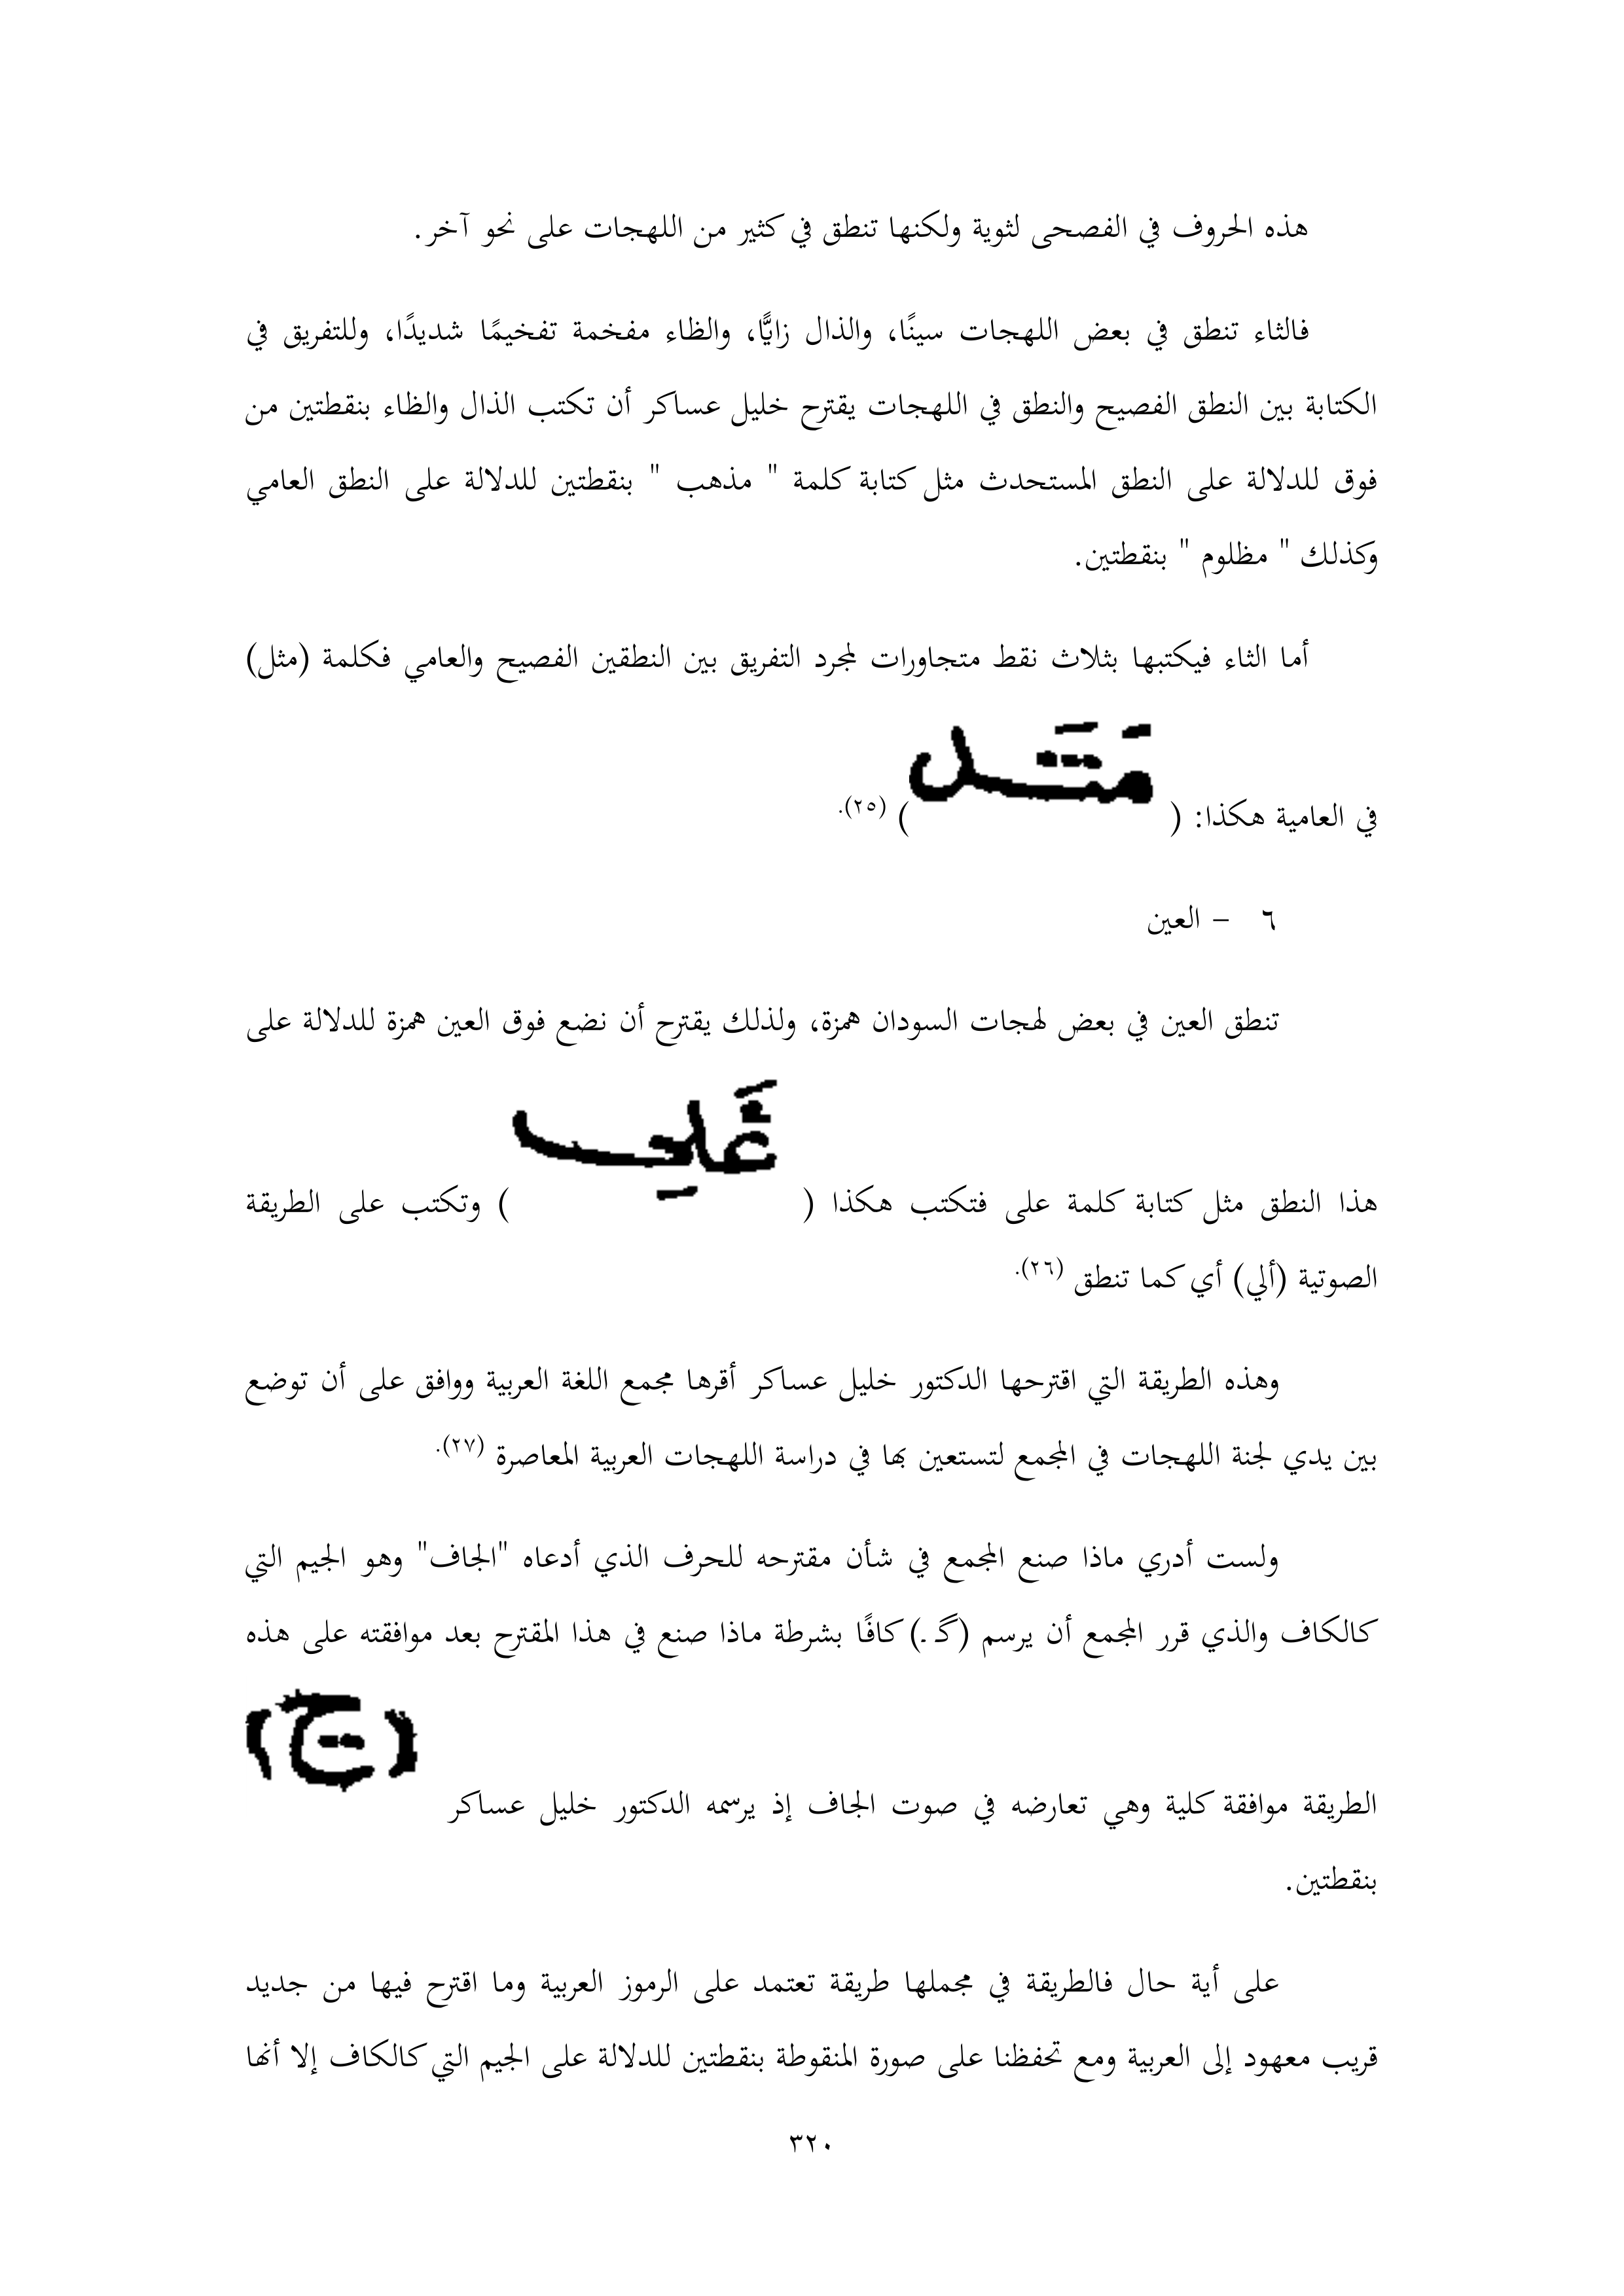 هذه الحروف في الفصحى لثوية ولكنها تنطق في كثير من اللهجات على نحو آخر.
فالثاء تنطق في بعض اللهجات سينًا، والذال زايًّا، والظاء مفخمة تفخيمًا شديدًا، وللتفريق في
الكتابة بين النطق الفصيح والنطق في اللهجات يقترح خليل عساكر أن تكتب الذال والظاء بنقطتين من
فوق للدلالة على النطق المستحدث مثل كتابة كلمة " مذهب " بنقطتين للدلالة على النطق العامي
وكذلك " مظلوم " بنقطتين.
أما الثاء فيكتبها بثلاث نقط متجاورات لمجرد التفريق بين النطقين الفصيح والعامي فكلمة (مثل)
في العامية هكذا: ( ) (٢٥).
٦ – العين
تنطق العين في بعض لهجات السودان همزة، ولذلك يقترح أن نضع فوق العين همزة للدلالة على
هذا النطق مثل كتابة كلمة على فتكتب هكذا ( ) وتكتب على الطريقة
الصوتية (ألي) أي كما تنطق (٢٦).
وهذه الطريقة التي اقترحها الدكتور خليل عساكر أقرها مجمع اللغة العربية ووافق على أن توضع
بين يدي لجنة اللهجات في المجمع لتستعين بها في دراسة اللهجات العربية المعاصرة (٢٧).
ولست أدري ماذا صنع المجمع في شأن مقترحه للحرف الذي أدعاه "الجاف" وهو الجيم التي
كالكاف والذي قرر المجمع أن يرسم (گـ .) كافًا بشرطة ماذا صنع في هذا المقترح بعد موافقته على هذه
الطريقة موافقة كلية وهي تعارضه في صوت الجاف إذ يرسمه الدكتور خليل عساكر
بنقطتين.
على أية حال فالطريقة في مجملها طريقة تعتمد على الرموز العربية وما اقترح فيها من جديد
قريب معهود إلى العربية ومع تحفظنا على صورة المنقوطة بنقطتين للدلالة على الجيم التي كالكاف إلا أنها
٣٢٠